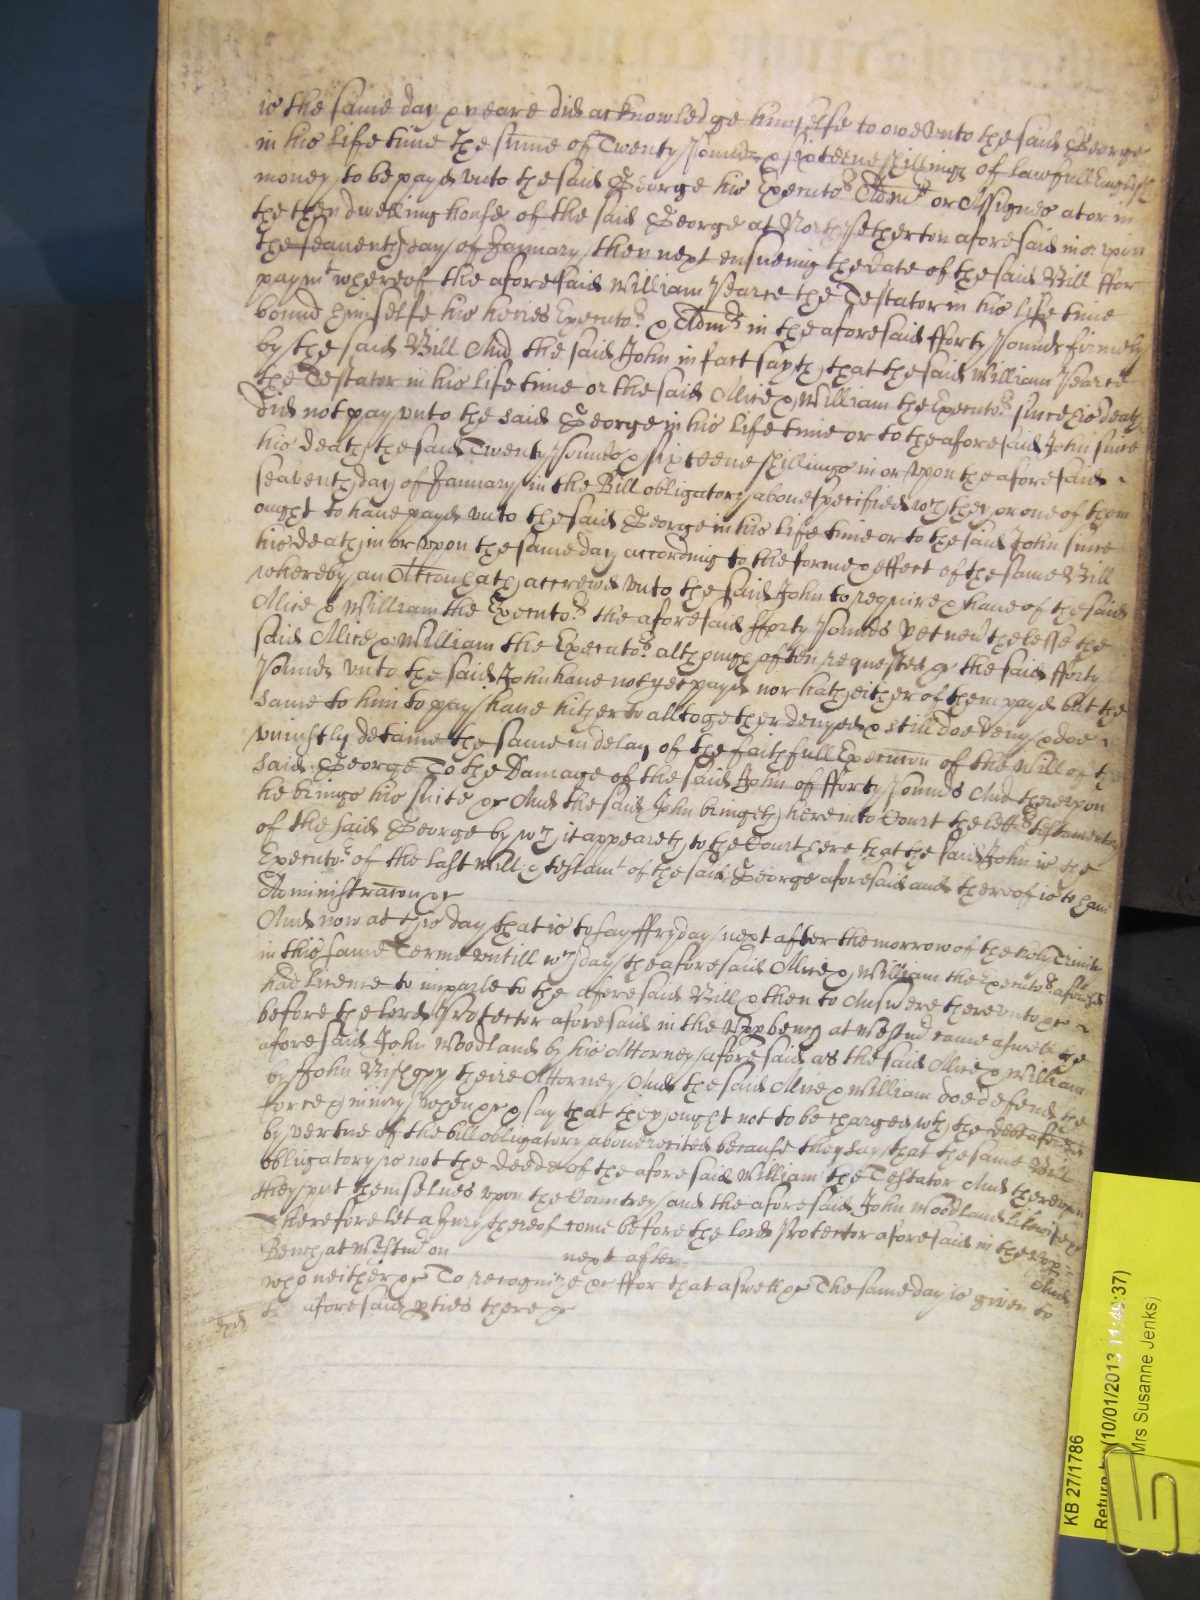 is the same day & yeare did acknowledge himselfe to owe vnto the said George
in his life time the sume of Twenty pounds & sixteene shillings of lawfull English
money to be payd vnto the said George his Executors Admrs or Assignes att or in
the then dwelling house of the said George at North Petherton aforesaid in or vpon
the seauenth day of January then next ensueing the date of the said Bill ffor
paymt whereof the aforesaid William Pearce the Testator in his life time
bound himselfe his heires Executors & Admrs in the aforesaid fforty pounds firmely
by the said Bill And the said John in fact sayth that the said William Pearce
the Testator in his life time or the said Alice & William the Executors since his death
did not pay vnto the said George in his life time or to the aforesaid John since
his death the said Twenty pounds & sixteene shillings in or vpon the aforesaid
seauenth day of January in the Bill obligatory aboue specified wch they or one of them
ought to haue payd vnto the said George in his life time or to the said John since
his death in or vpon the same day according to the forme & effect of the same Bill
whereby an Accon hath accrewed vnto the said John to require & haue of the said
Alice & William the Executors the aforesaid fforty pounds yet neuerthelesse the
said Alice & William the Executors although often requested &c the said fforty
pounds vnto the said John haue not yet payd nor hath either of them payd but the
same to him to pay haue hitherto alltogether denyed & still doe deny & doe
vniustly detaine the same in delay of the faithfull Execucon of the will of the
said George To the Damage of the said John of fforty pounds And therevpon
he brings his suite &c And the said John bringeth here into Court the letters testamentary
of the said George by wch it appeareth to the Court here that the said John is the
Executor of the last will & testamt of the said George aforesaid and thereof is to haue
Administracon &c
And now at this day that is to say ffryday next after the morrow of the holy Trinity
in this same Terme vntill wch day the aforesaid Alice & William the Executors aforesaid
had licence to imparle to the aforesaid Bill & then to Answere therevnto &c
before the lord Protector aforesaid in the vpp bench at Westmr came aswell the
aforesaid John Woodland by his Attorney aforesaid as the said Alice & William
by John theire Attorney And the said Alice & William doe defend the
force & iniury when &c & say that they ought not to be charged wth the debt aforesaid
by vertue of the bill obligatory aboue recited because they say that the same Bill
obligatory is not the deede of the aforesaid William the Testator And therevpon
they put themselues vpon the Countrey and the aforesaid John Woodland likewise &c
Therefore let a Jury thereof come before the lord Protector aforesaid in the vpp
Bench at Westmr on next after And
who neither &c To recognize &c ffor that aswell &c The same day is given to
aforesaid pties there &c
KB 27/1786
Return by (10/01/2013
Mrs Susanne Jenks)